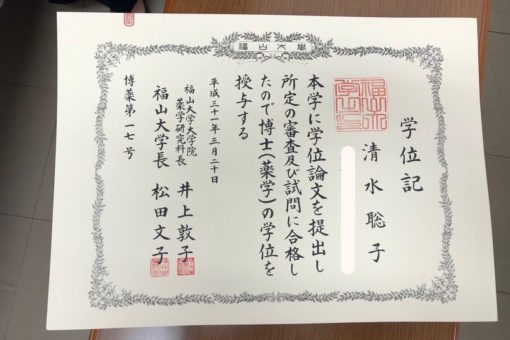 福山大學
学位記
清水聡子
本学に学位論文を提出し
所定の審査及び試問に合格し
たので博士(薬学)の学位を
授与する
平成三十一年三月二十日
福山大学大学院
薬学研究科長 井上敦子
福山大学長 松田文子
博薬第一一七号